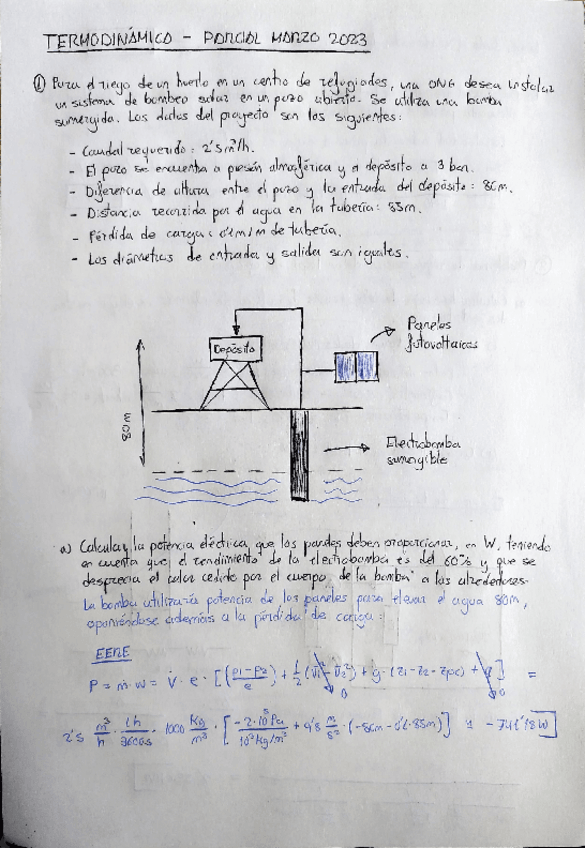 TERMODINÁMICA - PARCIAL MARZO 2023
① Para el riego de un huerto en un centro de refugiados, una ONG desea instalar
un sistema de bombeo solar en un pozo abierto. Se utiliza una bomba
sumergida. Los datos del proyecto son los siguientes:
- Caudal requerido: 2'5 m³/h.
- El pozo se encuentra a presión atmosférica y el depósito a 3 bar.
- Diferencia de altura entre el pozo y la entrada del depósito: 80m.
- Distancia recorrida por el agua en la tubería: 85m.
- Pérdida de carga: 0'1 m/m de tubería.
- Los diámetros de entrada y salida son iguales.
Paneles
fotovoltaicos
Depósito
80m
Electrobomba
sumergible
a) Calcular la potencia eléctrica que los paneles deben proporcionar, en W, teniendo
en cuenta que el rendimiento de la electrobomba es del 60% y que se
desprecia el calor cedido por el cuerpo de la bomba a los alrededores.
La bomba utilizaría potencia de los paneles para elevar el agua 80m,
oponiéndose además a la pérdida de carga:
EERE
P = ṁ · w = V̇ · ρ · [(p1-p2/ρ) + 1/2 (v1² - v2²) + g · (z1 - z2 - zpc) + q] =
0 0
2'5 m³/h · 1h/3600s · 1000 Kg/m³ · [-2·10⁵ Pa/10³ kg/m³ + 9'8 m/s² · (-80m - 0'1·85m)] = -741'18 W